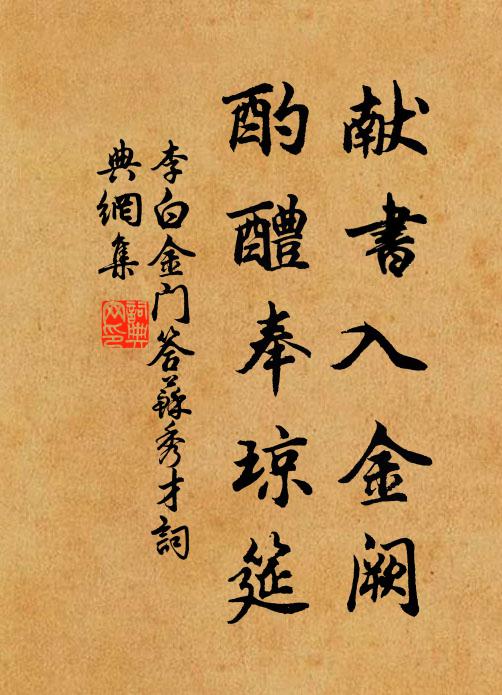 献書入金阙
酌醴奉琼筵
李白金门答蘇秀才詞
典網集
詞典网印